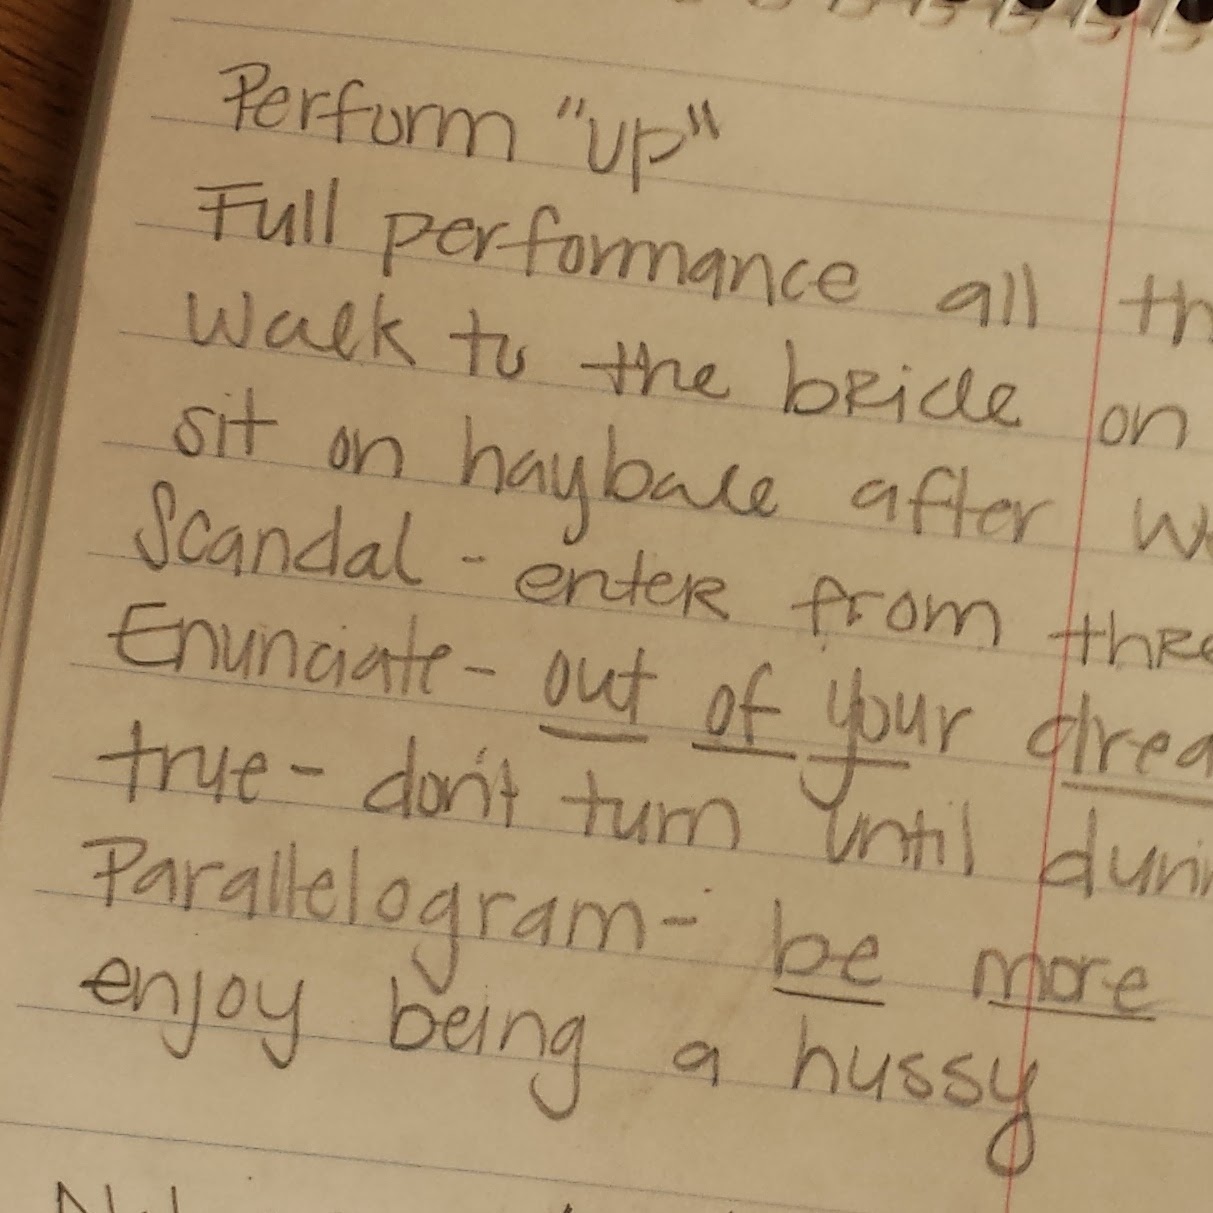 Perform "up"
Full performance all th
Walk to the bride on
sit on haybale after w
Scandal - enter from thre
Enunciate - out of your drea
true - don't turn until durin
Parallelogram - be more
enjoy being a hussy